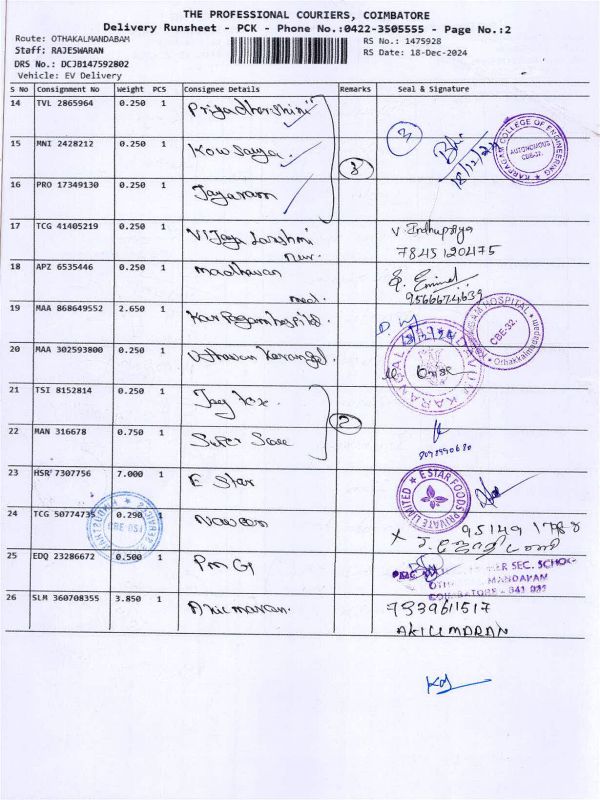 THE PROFESSIONAL COURIERS, COIMBATORE
Delivery Runsheet - PCK - Phone No.:0422-3505555 - Page No.:2
Route: OTHAKALMANDABAM RS No.: 1475928
Staff: RAJESWARAN RS Date: 18-Dec-2024
DRS No.: DCJB147592802
Vehicle: EV Delivery
S No Consignment No Weight PCS Consignee Details Remarks Seal & Signature
14 TVL 2865964 0.250 1 Priyadharshini 3
KARPAGAM COLLEGE OF ENGINEERING
AUTONOMOUS
CBE-32.
15 MNI 2428212 0.250 1 Kowsayya 18/12/24
16 PRO 17349130 0.250 1 Jayaram
17 TCG 41405219 0.250 1 Vijaya Lakshmi V. Indhupriya
7845120475
18 APZ 6535446 0.250 1 Madhavan
9566674639
19 MAA 868649552 2.650 1 Karpagam hospital
HOSPITAL
CBE-32.
20 MAA 302593800 0.250 1
21 TSI 8152814 0.250 1 Jay
22 MAN 316678 0.750 1 Super 2
23 HSR 7307756 7.000 1 E Star
ESTAR FOODS PRIVATE LIMITED
24 TCG 50774735 0.290 1 Naveen 95149 1788
25 EDQ 23286672 0.500 1 PMG
SEC. SCHOO
MANDAPAM
26 SLM 360708355 3.850 1 Akilmaran. 7339611517
AKILMARAN